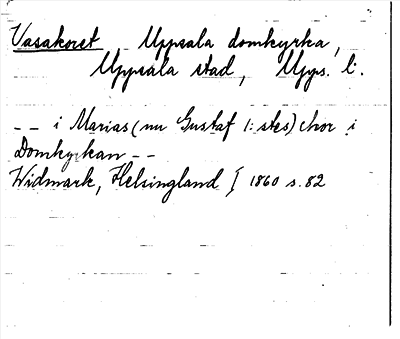 Vasakoret Uppsala domkyrka,
Uppsala stad, Upps. l.
-- i Marias (nu Gustaf I:stes) chor i
Domkyrkan --
Widmark, Helsingland I 1860 s. 82